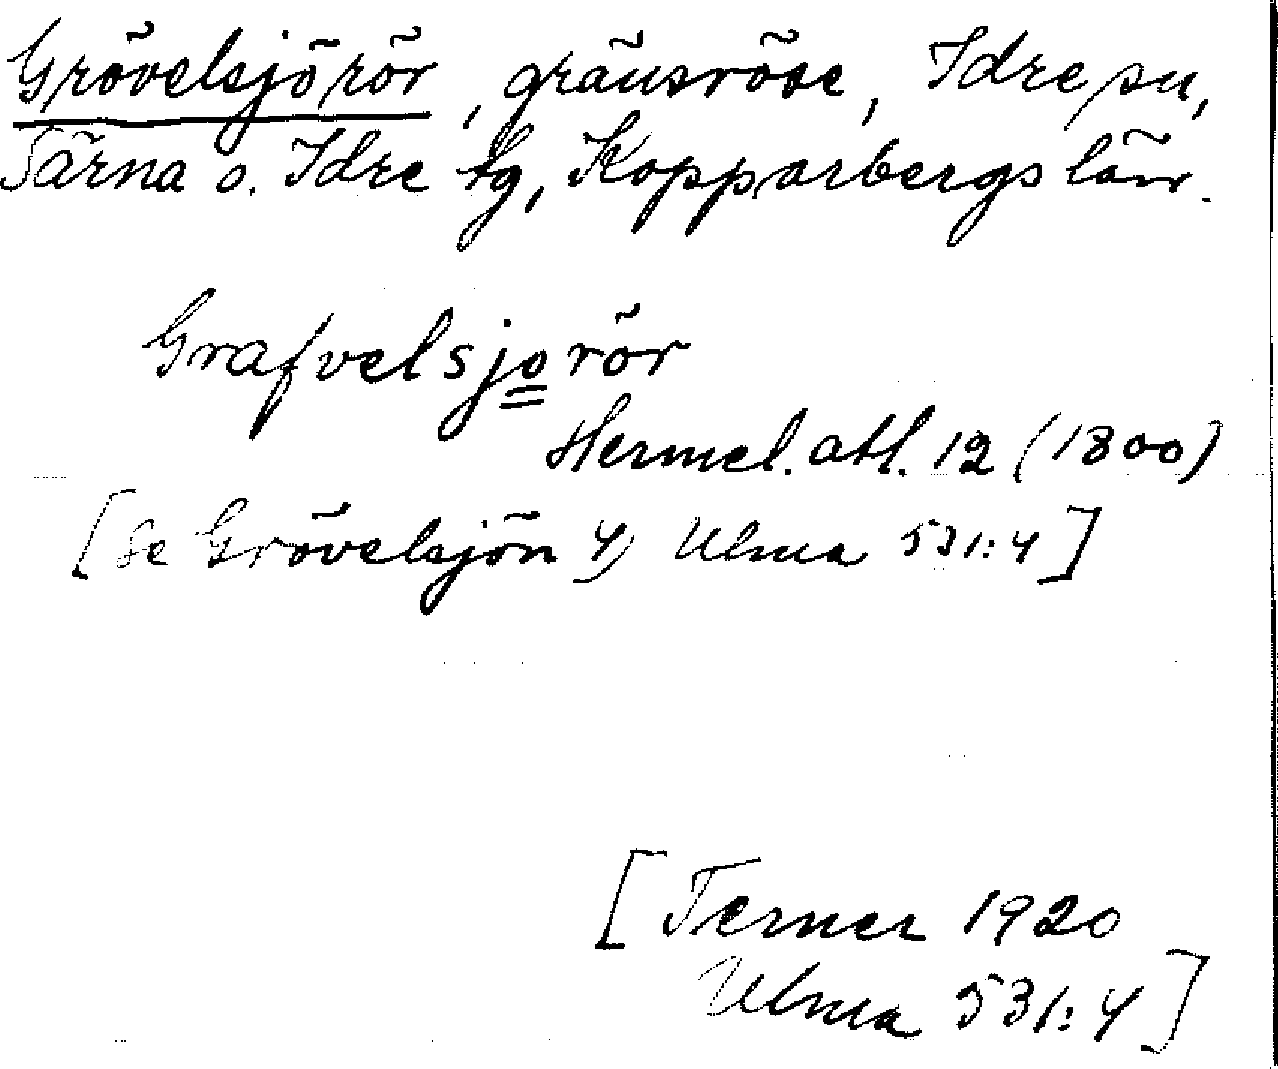 Grövelsjörör, gränsröse, Idre sn,
Särna o. Idre tg, Kopparbergs län.
Grafvelsjorör
Hermel. atl. 12 (1800)
[se Grövelsjön 4) Ulma 531:4]
[Terner 1920
Ulma 531:4]